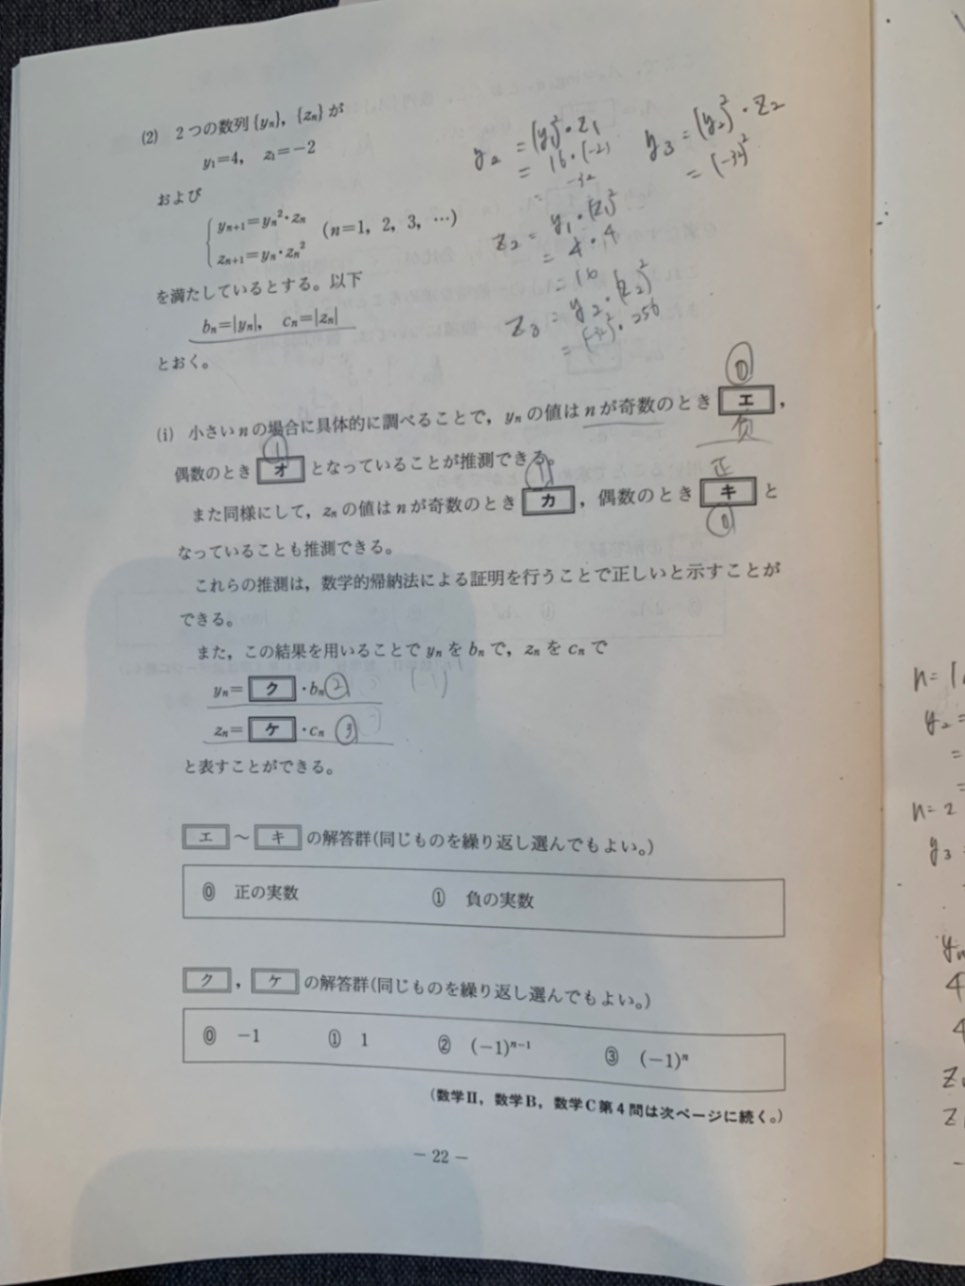 (2) 2つの数列{yn}, {zn}が
y1=4, z1=−2
および
yn+1=yn²・zn
zn+1=yn・zn²
(n=1, 2, 3, …)
を満たしているとする。以下
bn=|yn|, cn=|zn|
とおく。
y2 = (y1)²・z1
= 16・(-2)
-32
z2 = y1・(z1)²
= 4・4
= 16
z3 = y2・(z2)²
・256
y3 = (y2)²・z2
= (-32)²
(i) 小さいnの場合に具体的に調べることで，ynの値はnが奇数のとき エ ，
⓪
負
偶数のとき オ となっていることが推測できる。
①
また同様にして，znの値はnが奇数のとき カ ，偶数のとき キ と
①
正
⓪
なっていることも推測できる。
これらの推測は，数学的帰納法による証明を行うことで正しいと示すことが
できる。
また，この結果を用いることでynをbnで，znをcnで
yn= ク ・bn ②
zn= ケ ・cn ③
と表すことができる。
エ ～ キ の解答群(同じものを繰り返し選んでもよい。)
⓪ 正の実数 ① 負の実数
ク ， ケ の解答群(同じものを繰り返し選んでもよい。)
⓪ −1 ① 1 ② (−1)ⁿ⁻¹ ③ (−1)ⁿ
(数学Ⅱ，数学B，数学C第4問は次ページに続く。)
− 22 −
y2=
n=2
y3
yn
4
4